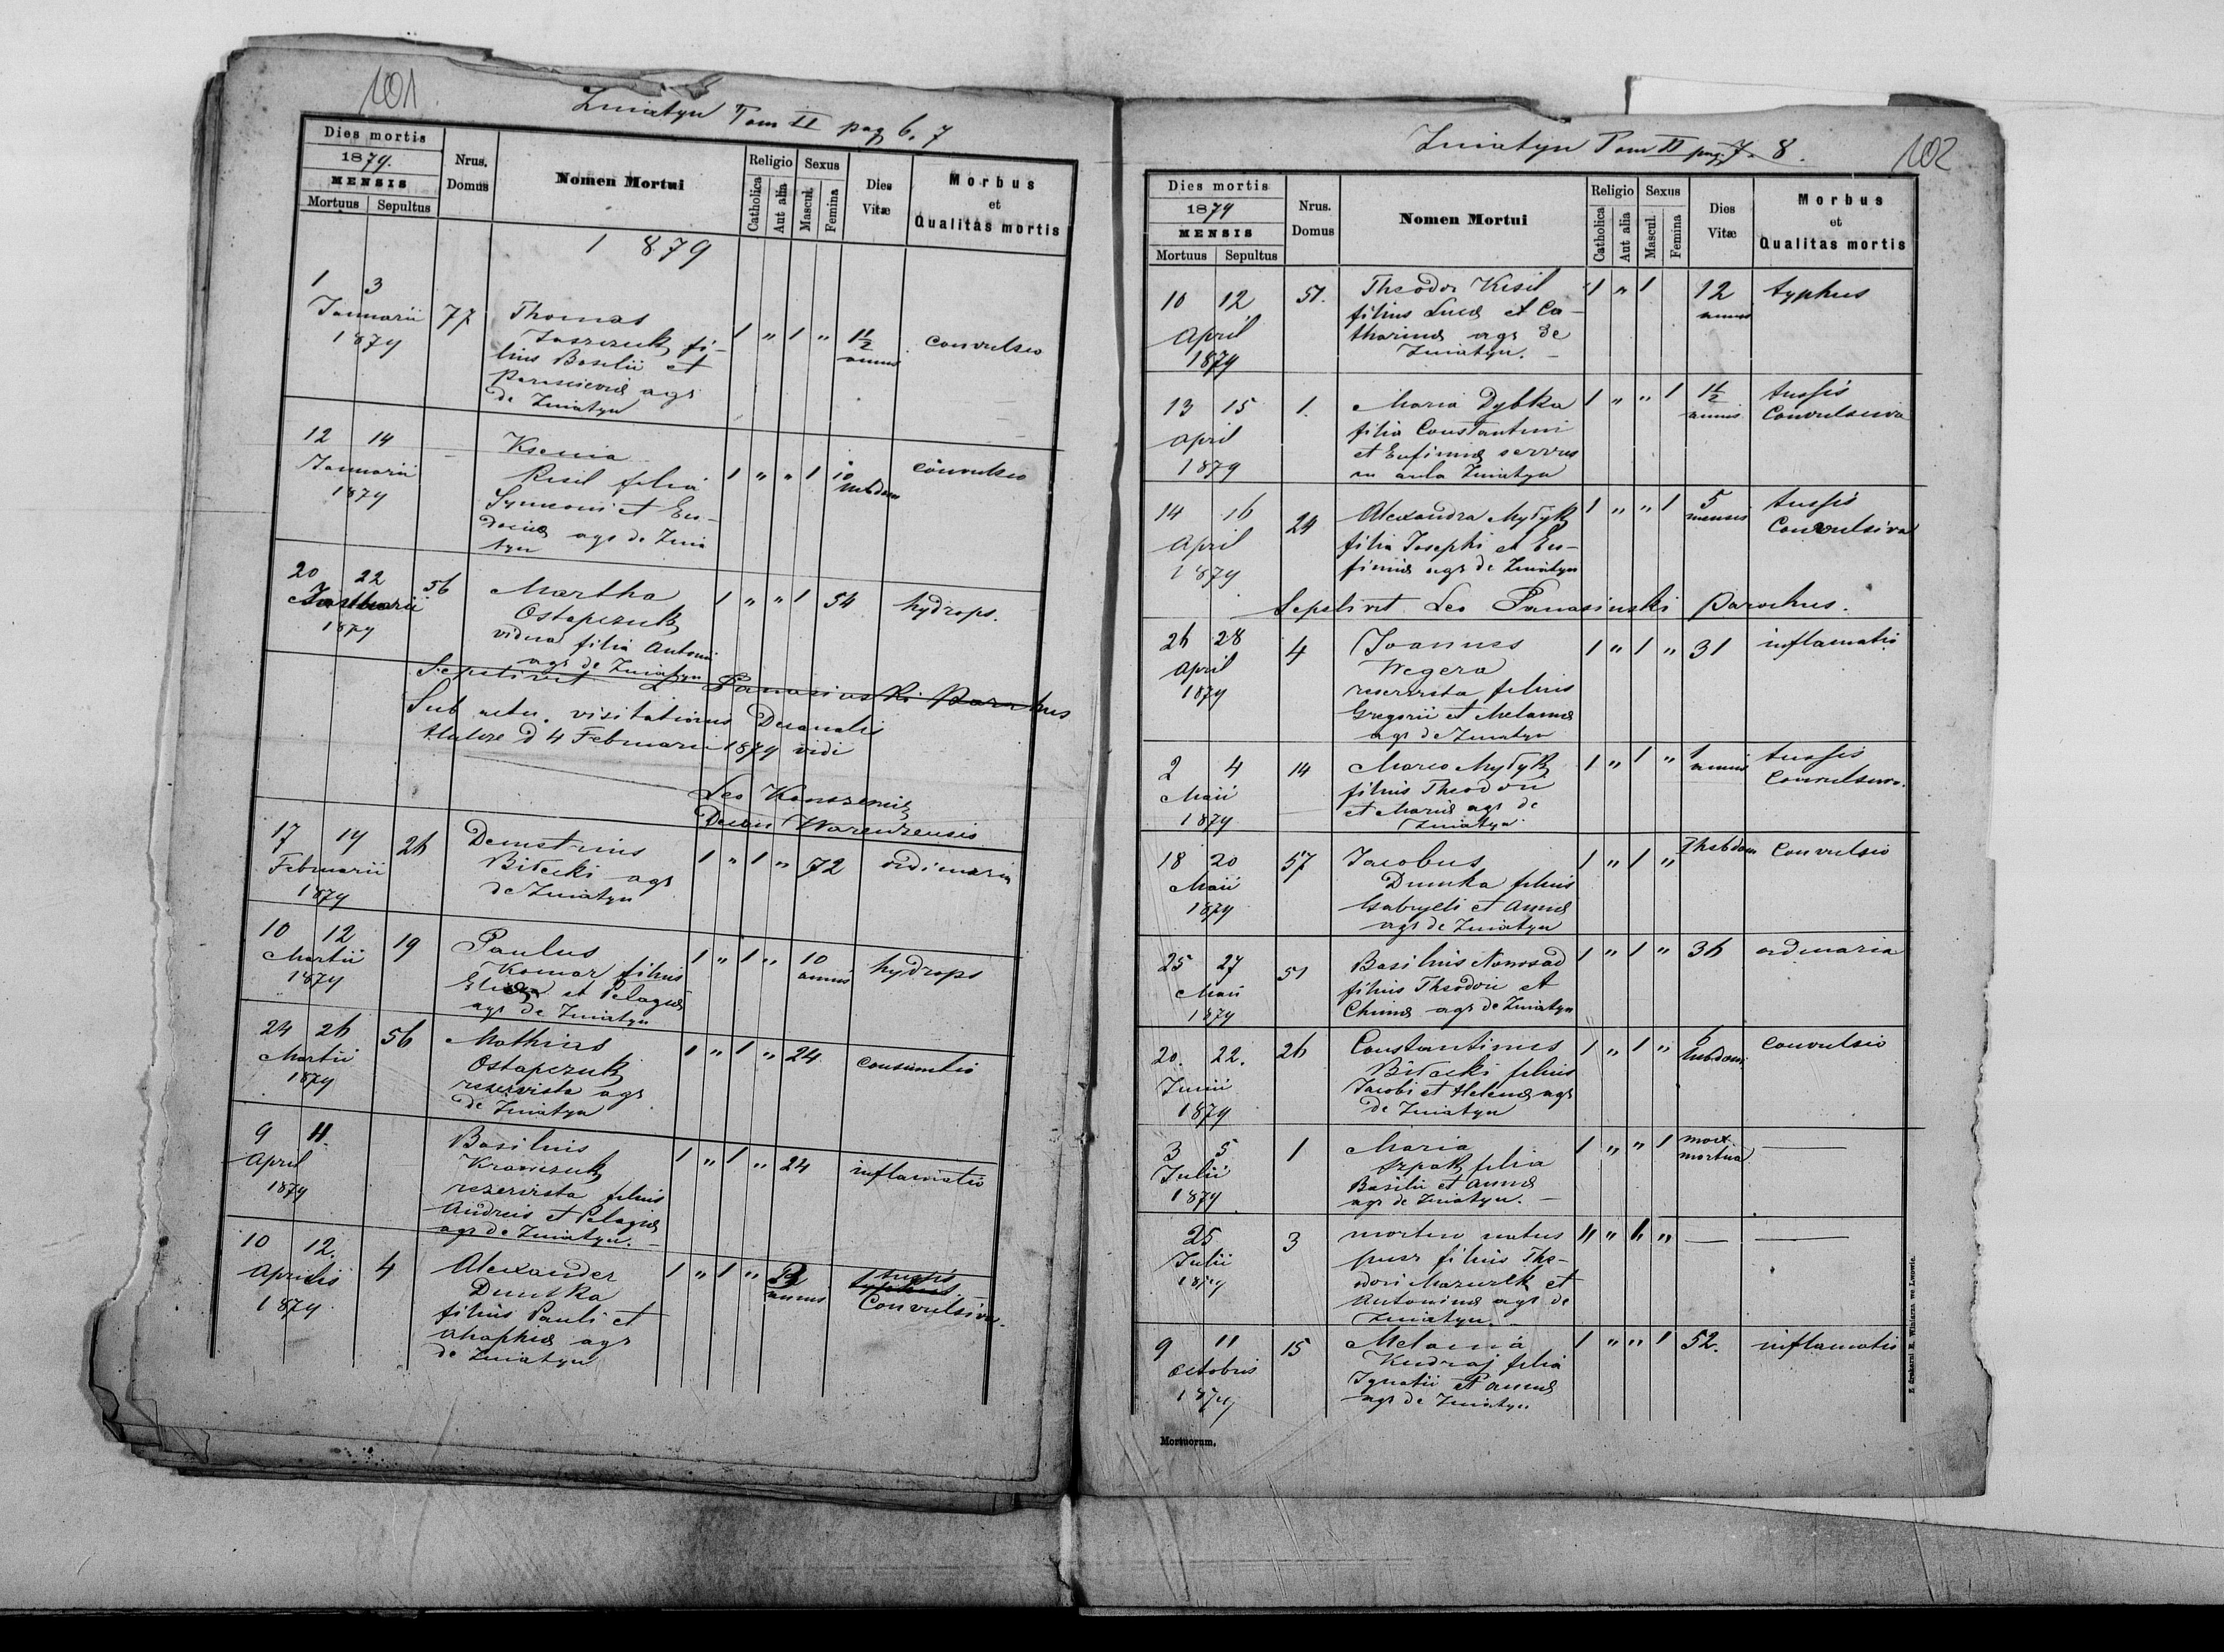 101
Zniatyn Tom II pag 6. 7
Dies mortis
1879.
MENSIS
Mortuus Sepultus
Nrus. Domus
Nomen Mortui
Religio
Catholica
Aut alia
Sexus
Mascul.
Femina
Dies Vitæ
Morbus
et
Qualitas mortis
1879
1 3 Januarii 1879 77 Thomas 1 " 1 " 1½ annus convulsio
filius Basilii et
Parascevæ agr
de Zniatyn
12 14 Januarii 1879 — Ksenia 1 " " 1 10 hebdom convulsio
Kisil filia
Symeoni et Eu-
dociæ agr de Znia
tyn
20 22 Januarii 1879 56 Martha 1 " " 1 54 hydrops.
Ostapczuk
vidua filia Antoni
agr de Zniatyn
Sepelivit L Panasinski Parochus
Sub actu visitationis Decanalis
d 4 Februarii 1879 vidi
Leo
Decan Warenzensis
17 19 Februarii 1879 26 Demetrius 1 " 1 " 72 ordinaria
Biłecki agr
de Zniatyn
10 12 Martii 1879 19 Paulus 1 " 1 " 10 annus hydrops
Komar filius
et Pelagiæ
agr de Zniatyn
24 26 Martii 1879 56 Mathias 1 " 1 " 24
Ostapczuk
rezervista agr
de Zniatyn
9 11. April 1879 Basilius 1 " 1 " 24 inflamatio
Krawczuk
rezervista filius
Andreis et Pelagiæ
agr de Zniatyn. —
10 12. Aprilis 1879 4 Alexander 1 " 1 " annus tussis
Dumka Convulsiva.
filius Pauli et
Ahaphiæ agr
de Zniatyn
Zniatyn Tom II pag. 7. 8.
102
Dies mortis
1879
MENSIS
Mortuus Sepultus
Nrus. Domus
Nomen Mortui
Religio
Catholica
Aut alia
Sexus
Mascul.
Femina
Dies Vitæ
Morbus
et
Qualitas mortis
10 12 April 1879 51. Theodor Kisil 1 " 1 12 annus typhus
filius Lucæ et Ca-
tharinæ agr de
Zniatyn. —
13 15 April 1879 1. Maria Dybka 1 " " 1 1½ annus tussis
filia Constantini Convulsiva
et Eufimiæ servus
in aula Zniatyn
14 16 April 1879 24 Alexandra Mytyk 1 " " 1 5 mensis tussis
filia Josephi et Eu- Convulsiva
fimiæ agr de Zniatyn
Sepelivit Leo Panasinski Parochus.
26 28 April 1879 4 Joannes 1 " 1 " 31 inflamatio
Wegera
reservista filius
Gregorii et Melaniæ
agr de Zniatyn
2 4 Maii 1879 14 Marco Mytyk 1 " 1 " 1 annus tussis
filius Theodori Convulsiva.
et Mariæ agr de
Zniatyn
18 20 Maii 1879 57 Jacobus 1 " 1 " 7 hebdom Convulsio
Dumka filius
Gabryelis et Annæ
agr de Zniatyn
25 27 Maii 1879 51 Basilius Nowosad 1 " 1 " 36 ordinaria
filius Theodori et
agr de Zniatyn
20. 22. Junii 1879 26 Constantinus 1 " 1 " 6 hebdom Convulsio
Biłecki filius
Jacobi et Helenæ agr
de Zniatyn
3 5 Julii 1879 1 Maria 1 " " 1 mox mortua —
Szpak filia
Basilii et Annæ
agr de Zniatyn. —
25 Julii 1879 3 mortuo natus " " — —
puer filius The-
odori Mazurek et
Antoninæ agr de
Zniatyn. —
9 11 Octobris 1879 15 Melania 1 " " 1 52. inflamatio
Kudraj filia
Ignatii et Annæ
agr de Zniatyn
Mortuorum.
Z drukarni E. Winiarza we Lwowie.